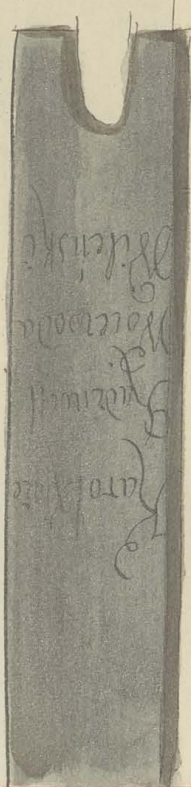 Karol Xże
Radziwiłł
Woiewoda
Wileński